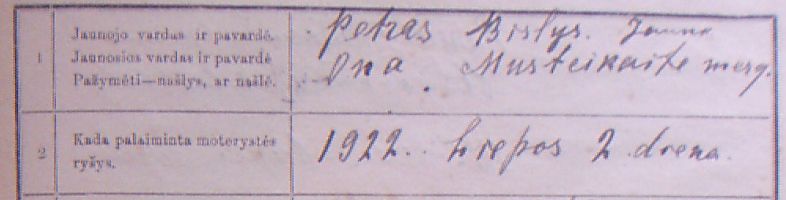 1 Jaunojo vardas ir pavardė. Petras Bislys. Jauna
Jaunosios vardas ir pavardė Ona Musteikaite merg.
Pažymėti—našlys, ar našlė.
2 Kada palaiminta moterystės 1922. Liepos 2 diena.
ryšys.